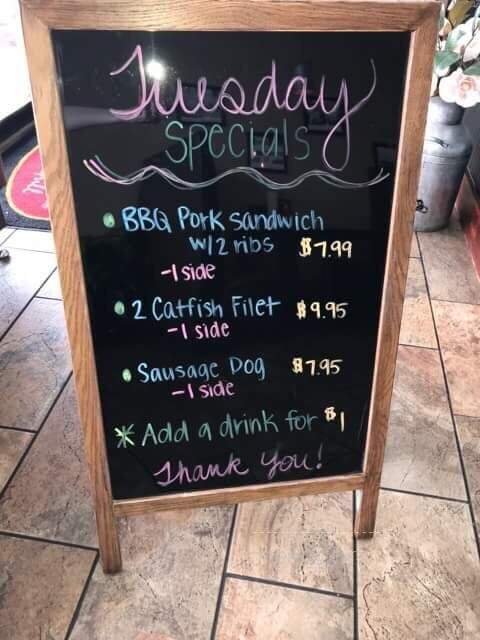 Tuesday
Specials
BBQ Pork Sandwich
w/2 ribs $7.99
-1 side
2 Catfish Filet $9.95
-1 side
Sausage Dog $7.95
-1 side
* Add a drink for $1
Thank you!